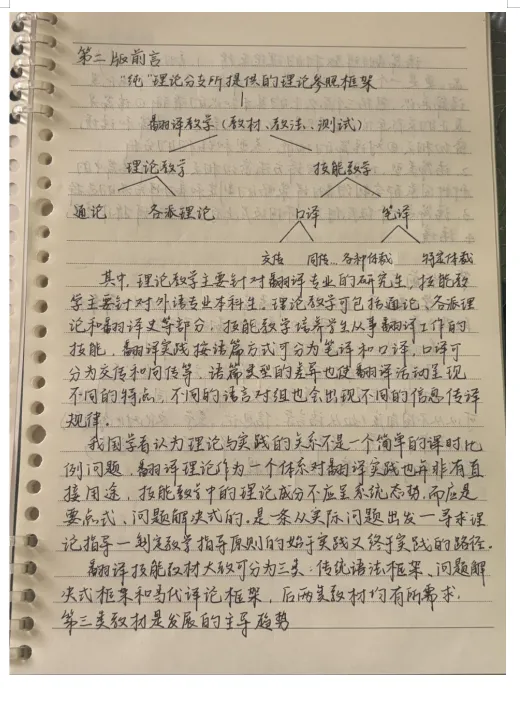 第二版前言
"纯"理论分支所提供的理论参照框架
翻译教学（教材、教法、测试）
理论教学 技能教学
通论 各派理论 口译 笔译
交传 同传… 各种体裁 特定体裁
其中，理论教学主要针对翻译专业的研究生，技能教
学主要针对外语专业本科生，理论教学可包括通论、各派理
论和翻译史等部分，技能教学培养学生从事翻译工作的
技能，翻译实践按语篇方式可分为笔译和口译，口译可
分为交传和同传等，语篇类型的差异也使翻译活动呈现
不同的特点，不同的语言对组也会出现不同的信息传译
规律。
我国学者认为理论与实践的关系不是一个简单的课时比
例问题，翻译理论作为一个体系对翻译实践也并非有直
接用途，技能教学中的理论成分不应呈系统态势，而应是
要点式、问题解决式的，是一条从实际问题出发—寻求理
论指导—到教学指导原则的始于实践又终于实践的路径。
翻译技能教材大致可分为三类：传统语法框架、问题解
决式框架和当代译论框架，后两类教材均有所需求，
第三类教材是发展的主导趋势